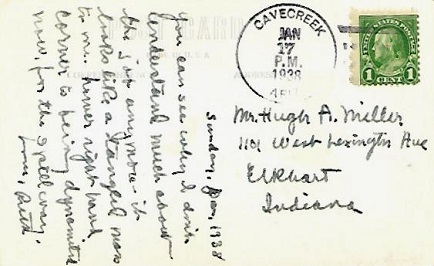 Sunday, Jan, 1938
You can see why I don't
understand much about
the job anymore - it
looks like a tangled mess
to me. Lower right hand
corner is being dynamited
now, for the spillway.
from, Bud
CAVECREEK
JAN
17
P.M.
1938
1 CENT 1
Mr. Hugh A. Miller
1101 West Lexington Ave
Elkhart
Indiana